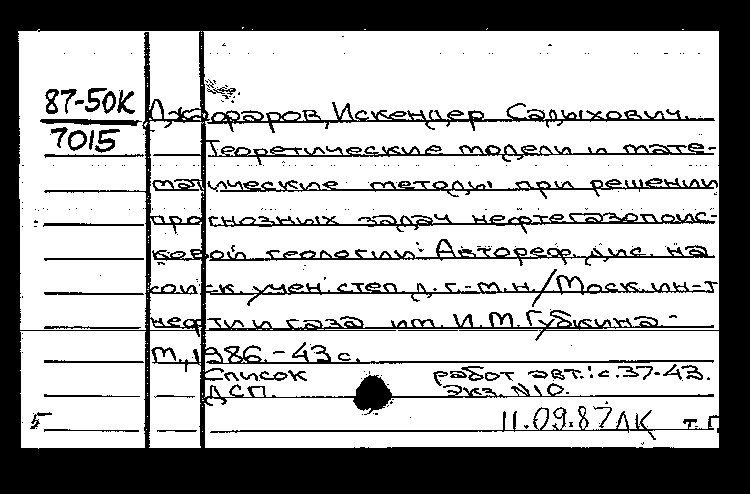 87-50К
7015
Джафаров, Искендер Садыхович.
Теоретические модели и мате-
матические методы при решении
прогнозных задач нефтегазопоис-
ковой геологии: Автореф. дис. на
соиск. учен. степ. д. г.-м. н. / Моск. ин-т
нефти и газа им. И. М. Губкина.-
М., 1986.-43 с.
Список работ авт.: с. 37-43.
ДСП. Экз. N10.
5 11.09.87 ЛК т. Г